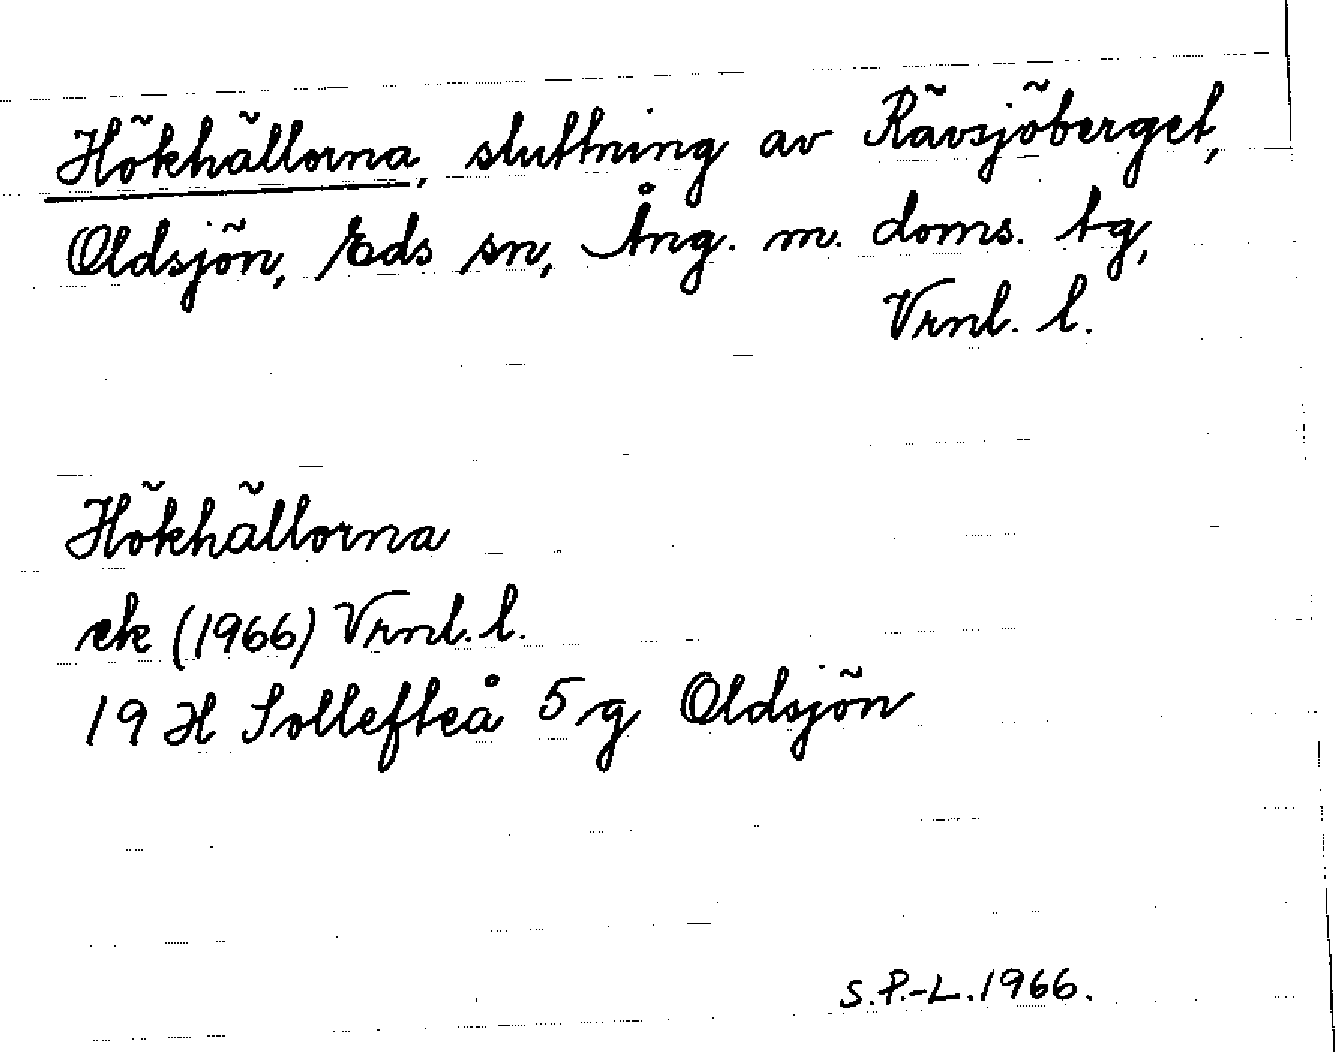 Hökhällorna, sluttning av Rävsjöberget,
Oldsjön, Eds sn, Ång. m. doms. tg,
Vrnl. l.
Hökhällorna
ek (1966) Vrnl. l.
19 H Sollefteå 5 g Oldsjön
S.P.-L. 1966.